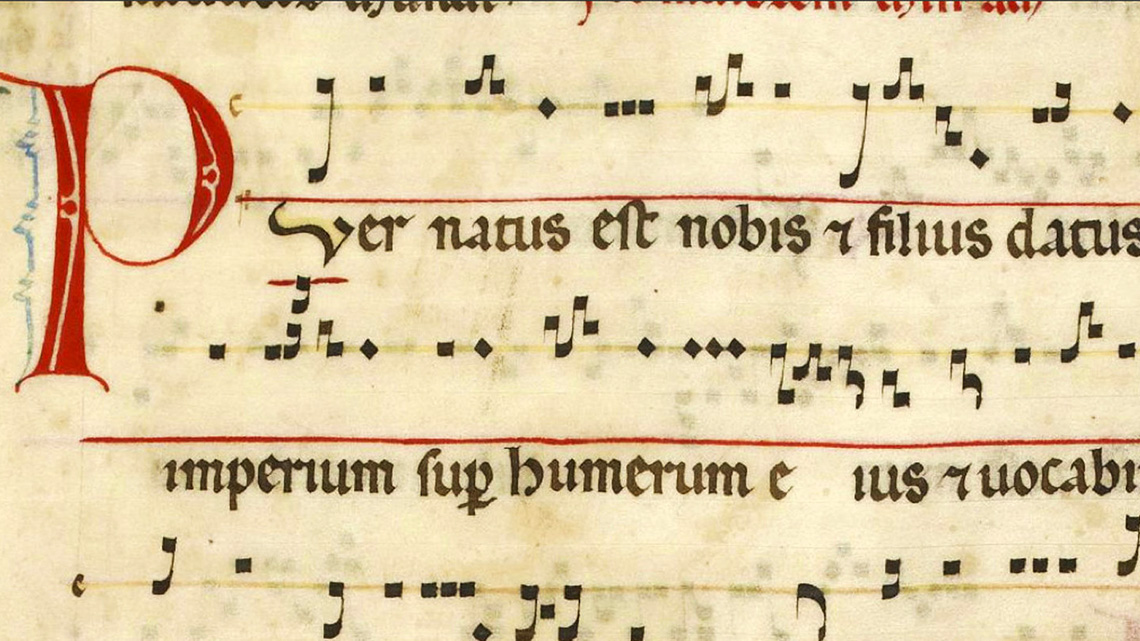 Puer natus est nobis ⁊ filius datus
imperium suꝑ humerum e ius ⁊ uocabi